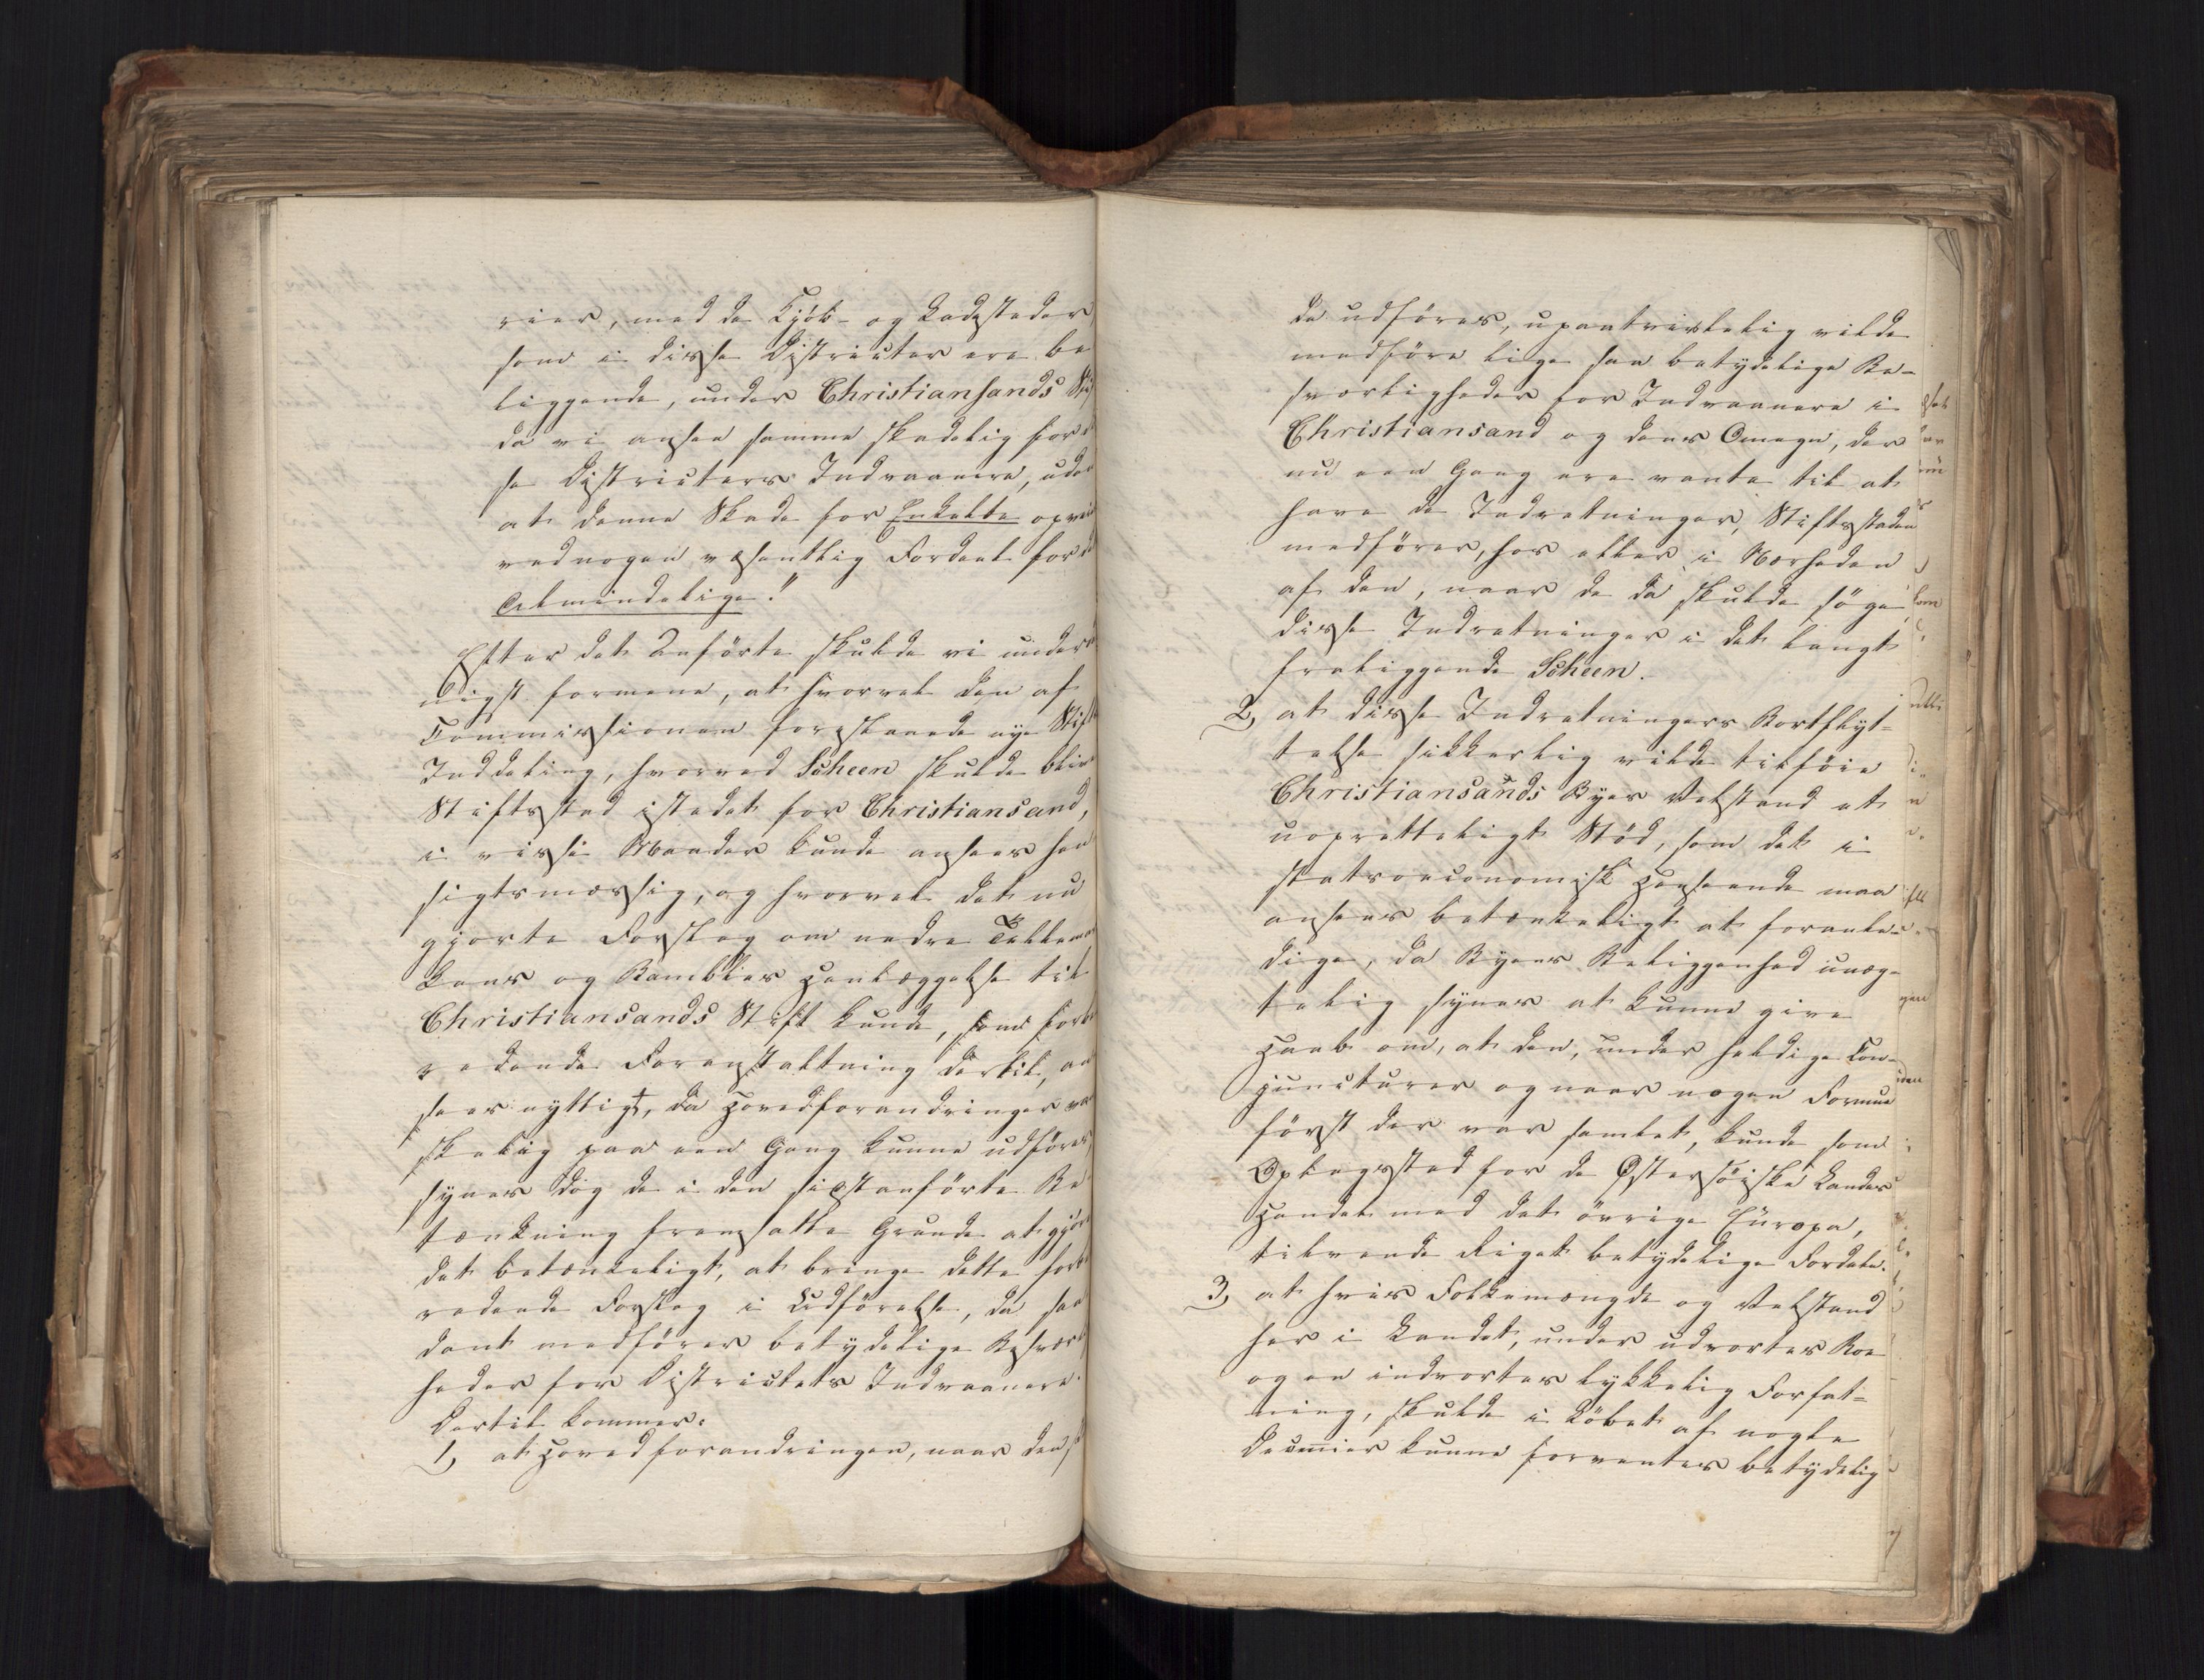 rier, med de Kjöb- og Ladestæder,
som i disse Districter ere be
liggende, under Christiansands
da vi ansee samme skadelig for
se Districters Indvaanere, uden
at denne Skade for Enkelte opveies
ved nogen væsentlig Fordeel for det
Almindelige."
Efter det Anförte skulde vi under
digst formene, at hvorvel den af
Commissionen foreslaaede nye Stifts
Inddeling, hvorved Scheen skulde blive
Stiftsstad istedet for Christiansand,
i visse Maader kunde ansees hen
sigtsmæssig, og hvorvel det nu
gjorte Forslag om nedre Tellemar
kens og Bambles Henlæggelse til
Christiansands Stift kunde, som forbe
redende Foranstaltning dertil, an
sees nyttigt, da Hovedforandringer van
skelig paa een Gang kunne udföres,
synes dog de i den sidstanförte Be
tænkning fremsatte Grunde at gjöre
det betænkeligt, at bringe dette forbe
redende Forslag i Udförelse, da saa
dant medförer betydelige Besvær
heder for Districtets Indvaanere.
Dertil kommer:
1, at Hovedforandringen, naar den
da udföres, upaatvivlelig vilde
medföre lige saa betydelige Be-
sværligheder for Indvaanere i
Christiansand og dens Omegn, der
nu een Gang ere vante til at
have de Indretninger, Stiftsstaden
medförer, hos eller i Nærheden
af dem, naar de da skulde söge
disse Indretninger i det langt
fraliggende Scheen.
2, at disse Indretningers Bortflyt-
telse sikkerlig vilde tilföie
Christiansands Byes Velstand et
uopretteligt Stöd, som det i
statsoeconomisk Henseende maa
ansees betænkeligt at foranle-
dige, da Byens Beliggenhed unæg-
telig synes at kunne give
Haab om, at den, under heldige Con-
juncturer og naar nogen Formue
först der var samlet, kunde som
Oplagssted for de Östersöiske Landes
Handel med det övrige Europa,
tilvende Riget betydelige Fordele.
3, at hvis Folkemængde og Velstand
her i Landet, under udvortes Roe
og en indvortes lykkelig Forfat-
ning, skulde i Löbet af nogle
Decennier kunne forventes betydelig